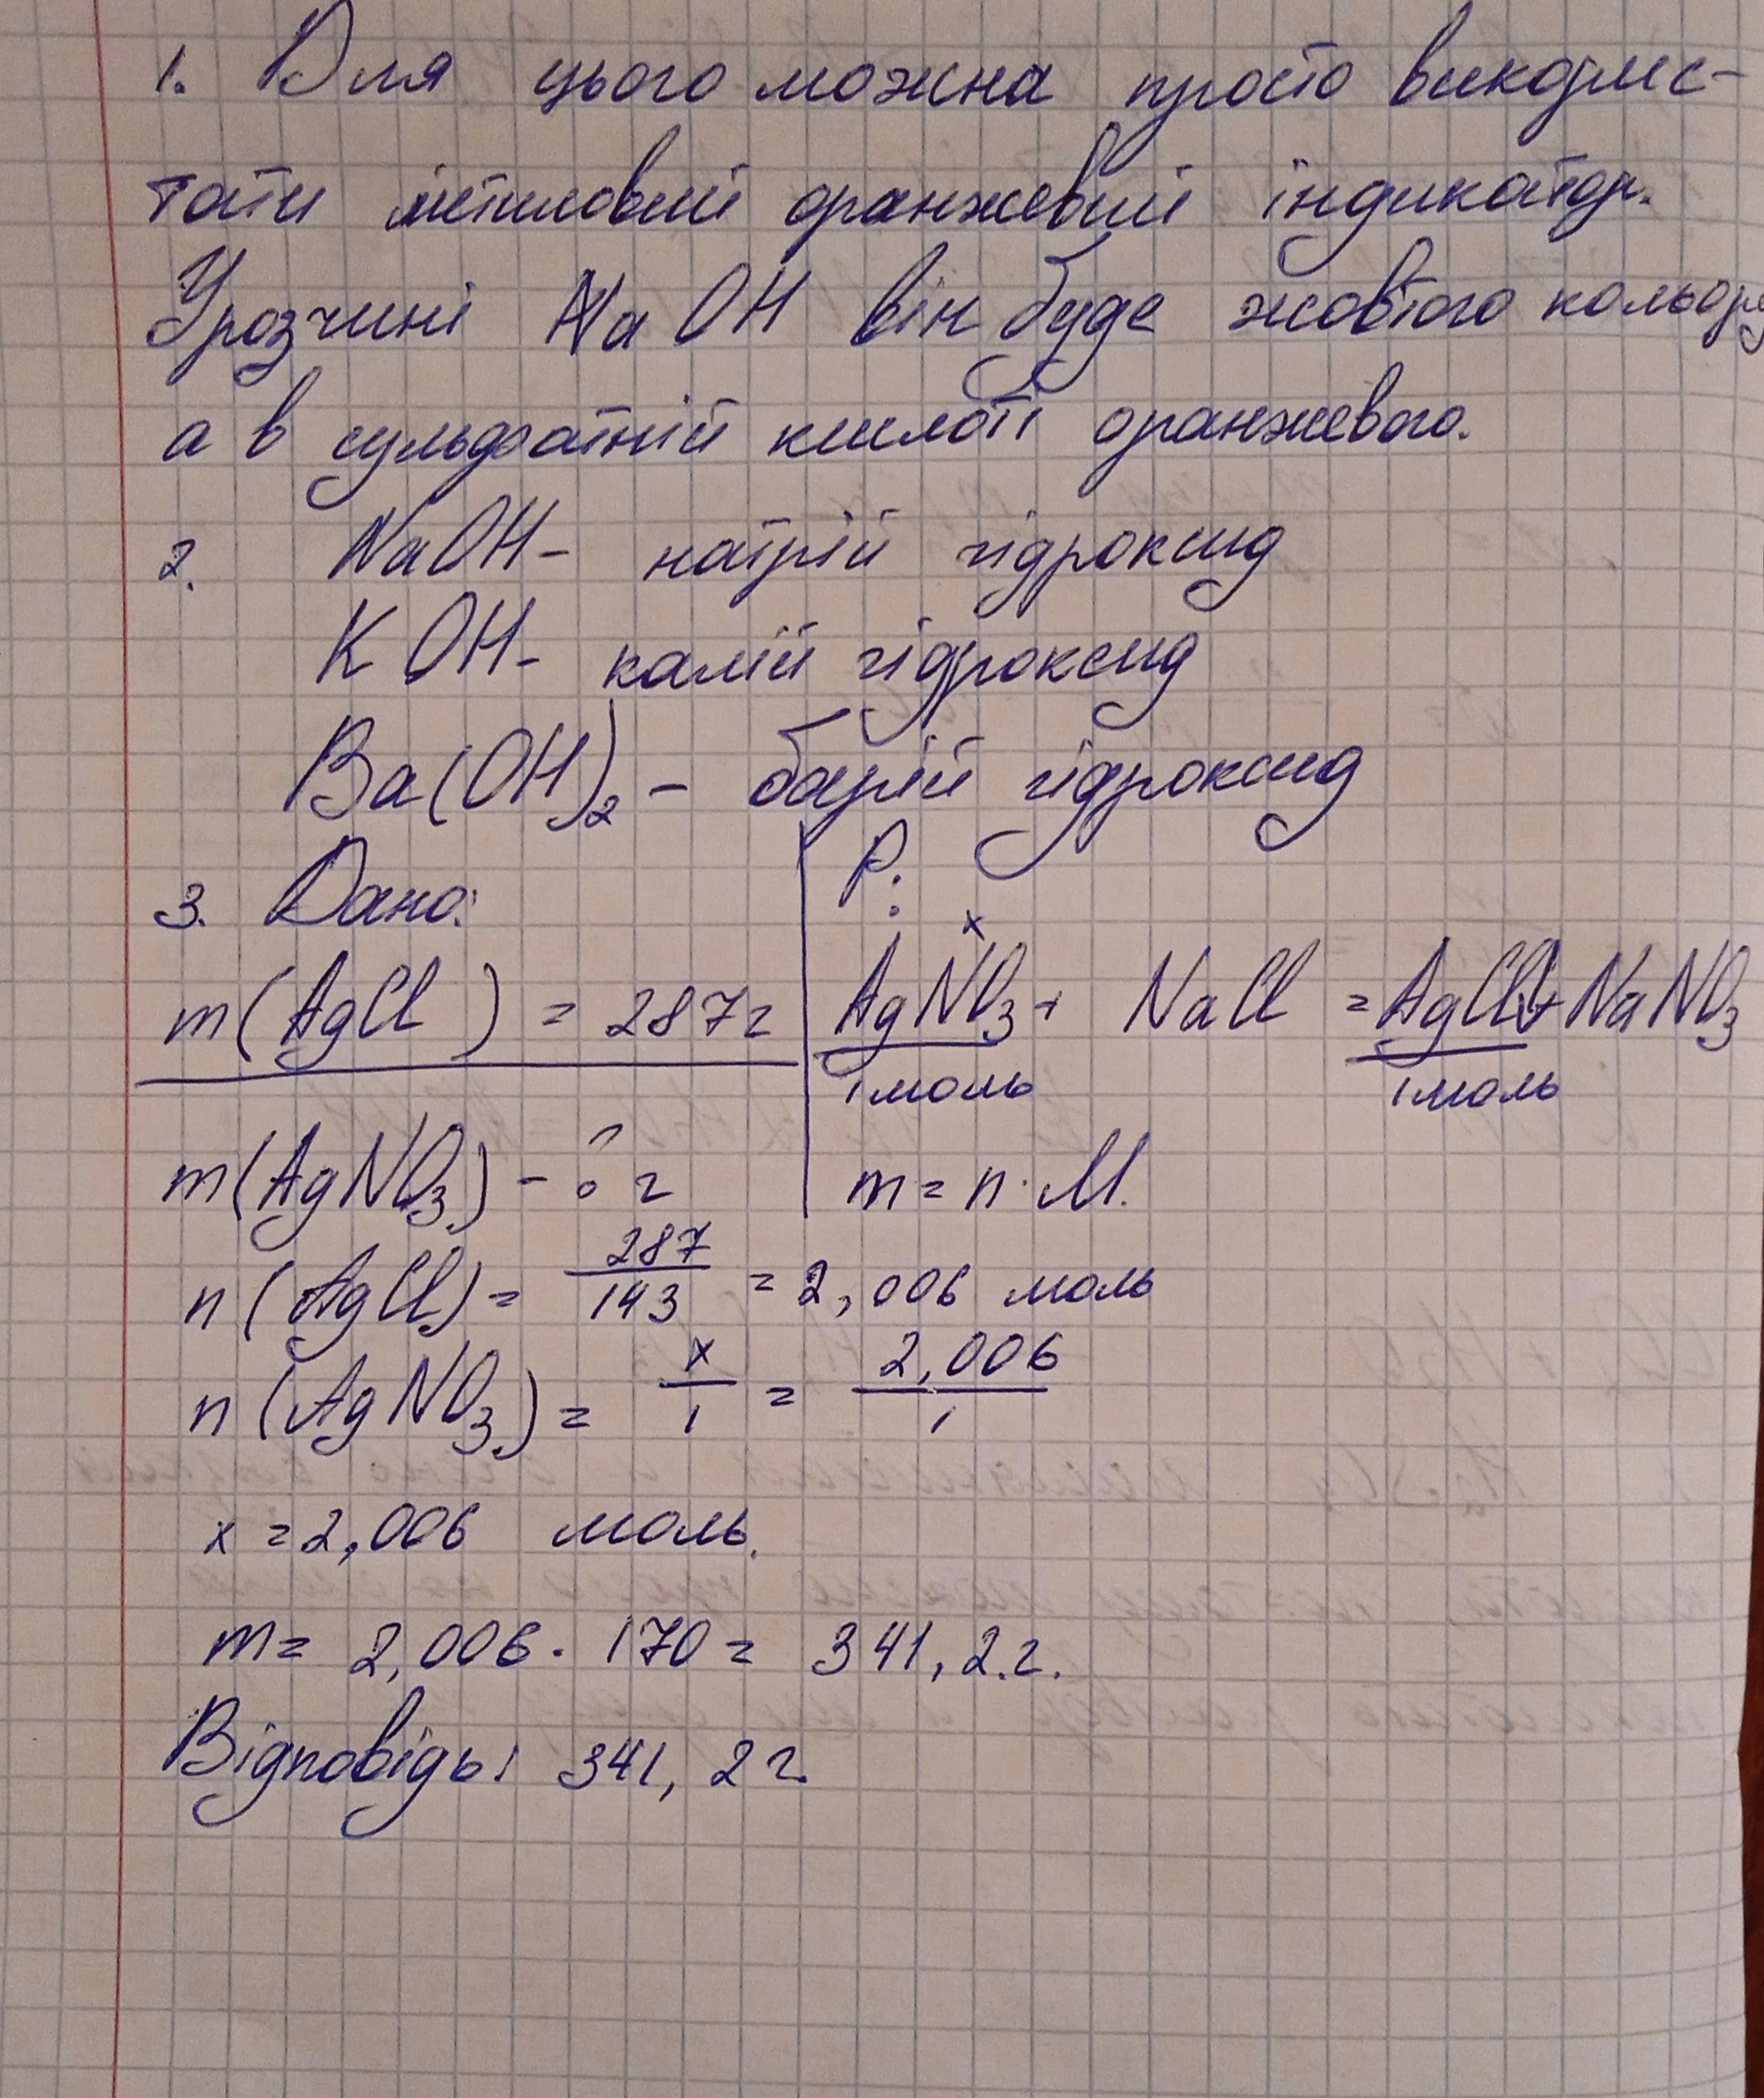 1. Для цього можна просто викорис-
тати метиловий оранжевий індикатор.
У розчині NaOH він буде жовтого кольору
а в сульфатній кислоті оранжевого.
2. NaOH - натрій гідроксид
KOH - калій гідроксид
Ba(OH)₂ - барій гідроксид
3. Дано: Р:
x
m(AgCl) = 287г AgNO₃ + NaCl = AgCl↓ + NaNO₃
1 моль 1 моль
m(AgNO₃) - ? г m = n · M.
n(AgCl) = 287/143 = 2,006 моль
n(AgNO₃) = x/1 = 2,006/1
x = 2,006 моль.
m = 2,006 · 170 = 341,2.г.
Відповідь: 341,2г.